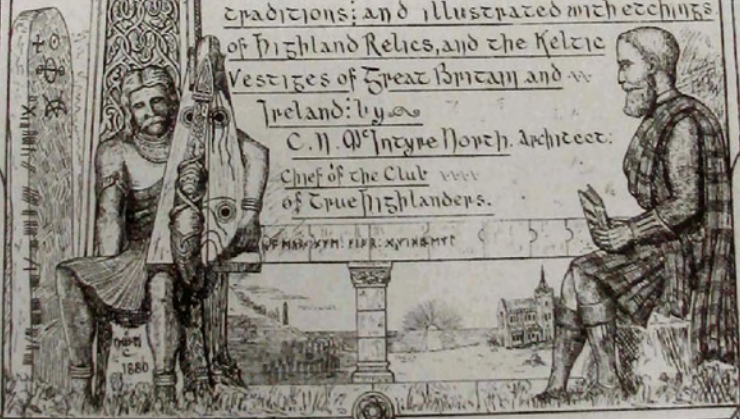 traditions; and illustrated with etchings
of Highland Relics, and the Keltic
Vestiges of Great Britain and
Ireland: by
C. N. McIntyre North. Architect:
Chief of the Club
of True Highlanders.
C.
1880